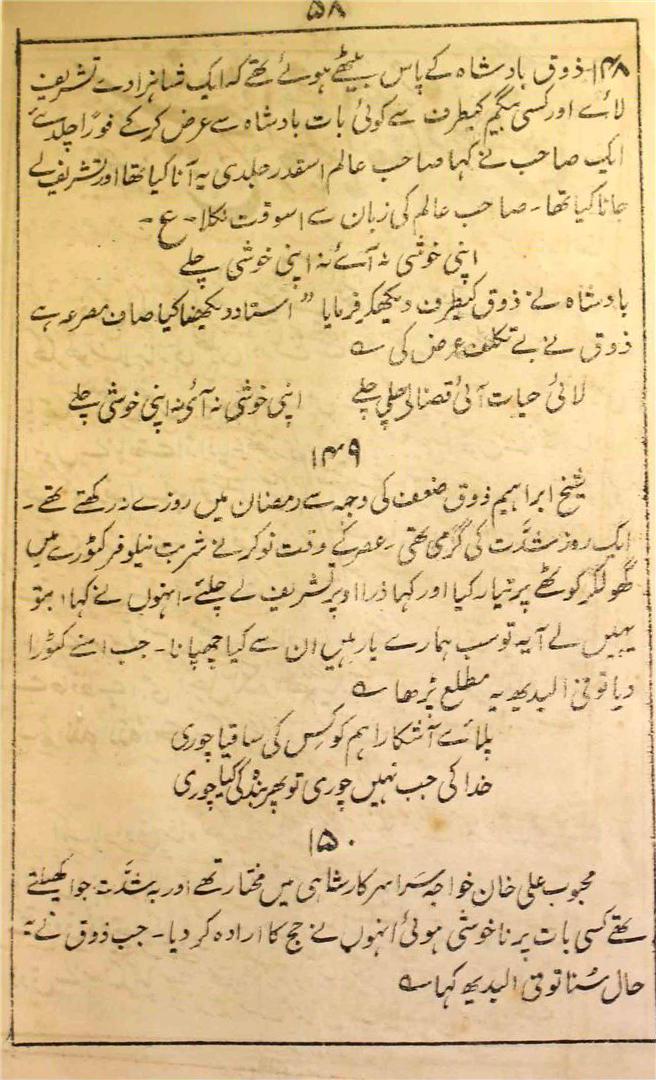 ۵۸
۱۴۸۔ ذوق بادشاہ کے پاس بیٹھے ہوئے تھے کہ ایک شاہزادے تشریف
لائے اور کسی بیگم کیطرف سے کوئی بات بادشاہ سے عرض کرکے فوراً چلدئے
ایک صاحب نے کہا صاحب عالم اسقدر جلدی یہ آنا کیا تھا اور تشریف لے
جانا کیا تھا۔ صاحب عالم کی زبان سے اسوقت نکلا۔ ع۔
اپنی خوشی نہ آئے نہ اپنی خوشی چلے
بادشاہ نے ذوق کیطرف دیکھکر فرمایا ”استاد دیکھنا کیا صاف مصرعہ ہے
ذوق نے بے تکلف عرض کی ؎
لائی حیات آئے قضا لے چلی چلے اپنی خوشی نہ آئے نہ اپنی خوشی چلے
۱۴۹
شیخ ابراہیم ذوق ضعف کی وجہ سے رمضان میں روزے نہ رکھتے تھے۔
ایک روز شدّت کی گرمی تھی۔ عصر کے وقت نوکر نے شربت نیلوفر کٹورے میں
گھولکر کوٹھے پر تیار کیا اور کہا ذرا اوپر تشریف لے چلئے۔ انہوں نے کہا
یہیں لے آ یہ تو سب ہمارے یار ہیں ان سے کیا چھپانا۔ جب اسنے کٹورا
دیا تو فی البدیھ یہ مطلع پڑھا ؎
پلائے آشکارا ہم کو کس کی ساقیا چوری
خدا کی جب نہیں چوری تو پھر بندہ کی کیا چوری
۱۵۰
محبوب علی خان خواجہ سرا سرکار شاہی میں مختار تھے اور بشدّت جوا کھیلتے
تھے کسی بات پر ناخوشی ہوئی انہوں نے حج کا ارادہ کر دیا۔ جب ذوق نے یہ
حال سُنا تو فی البدیھ کہا ؎